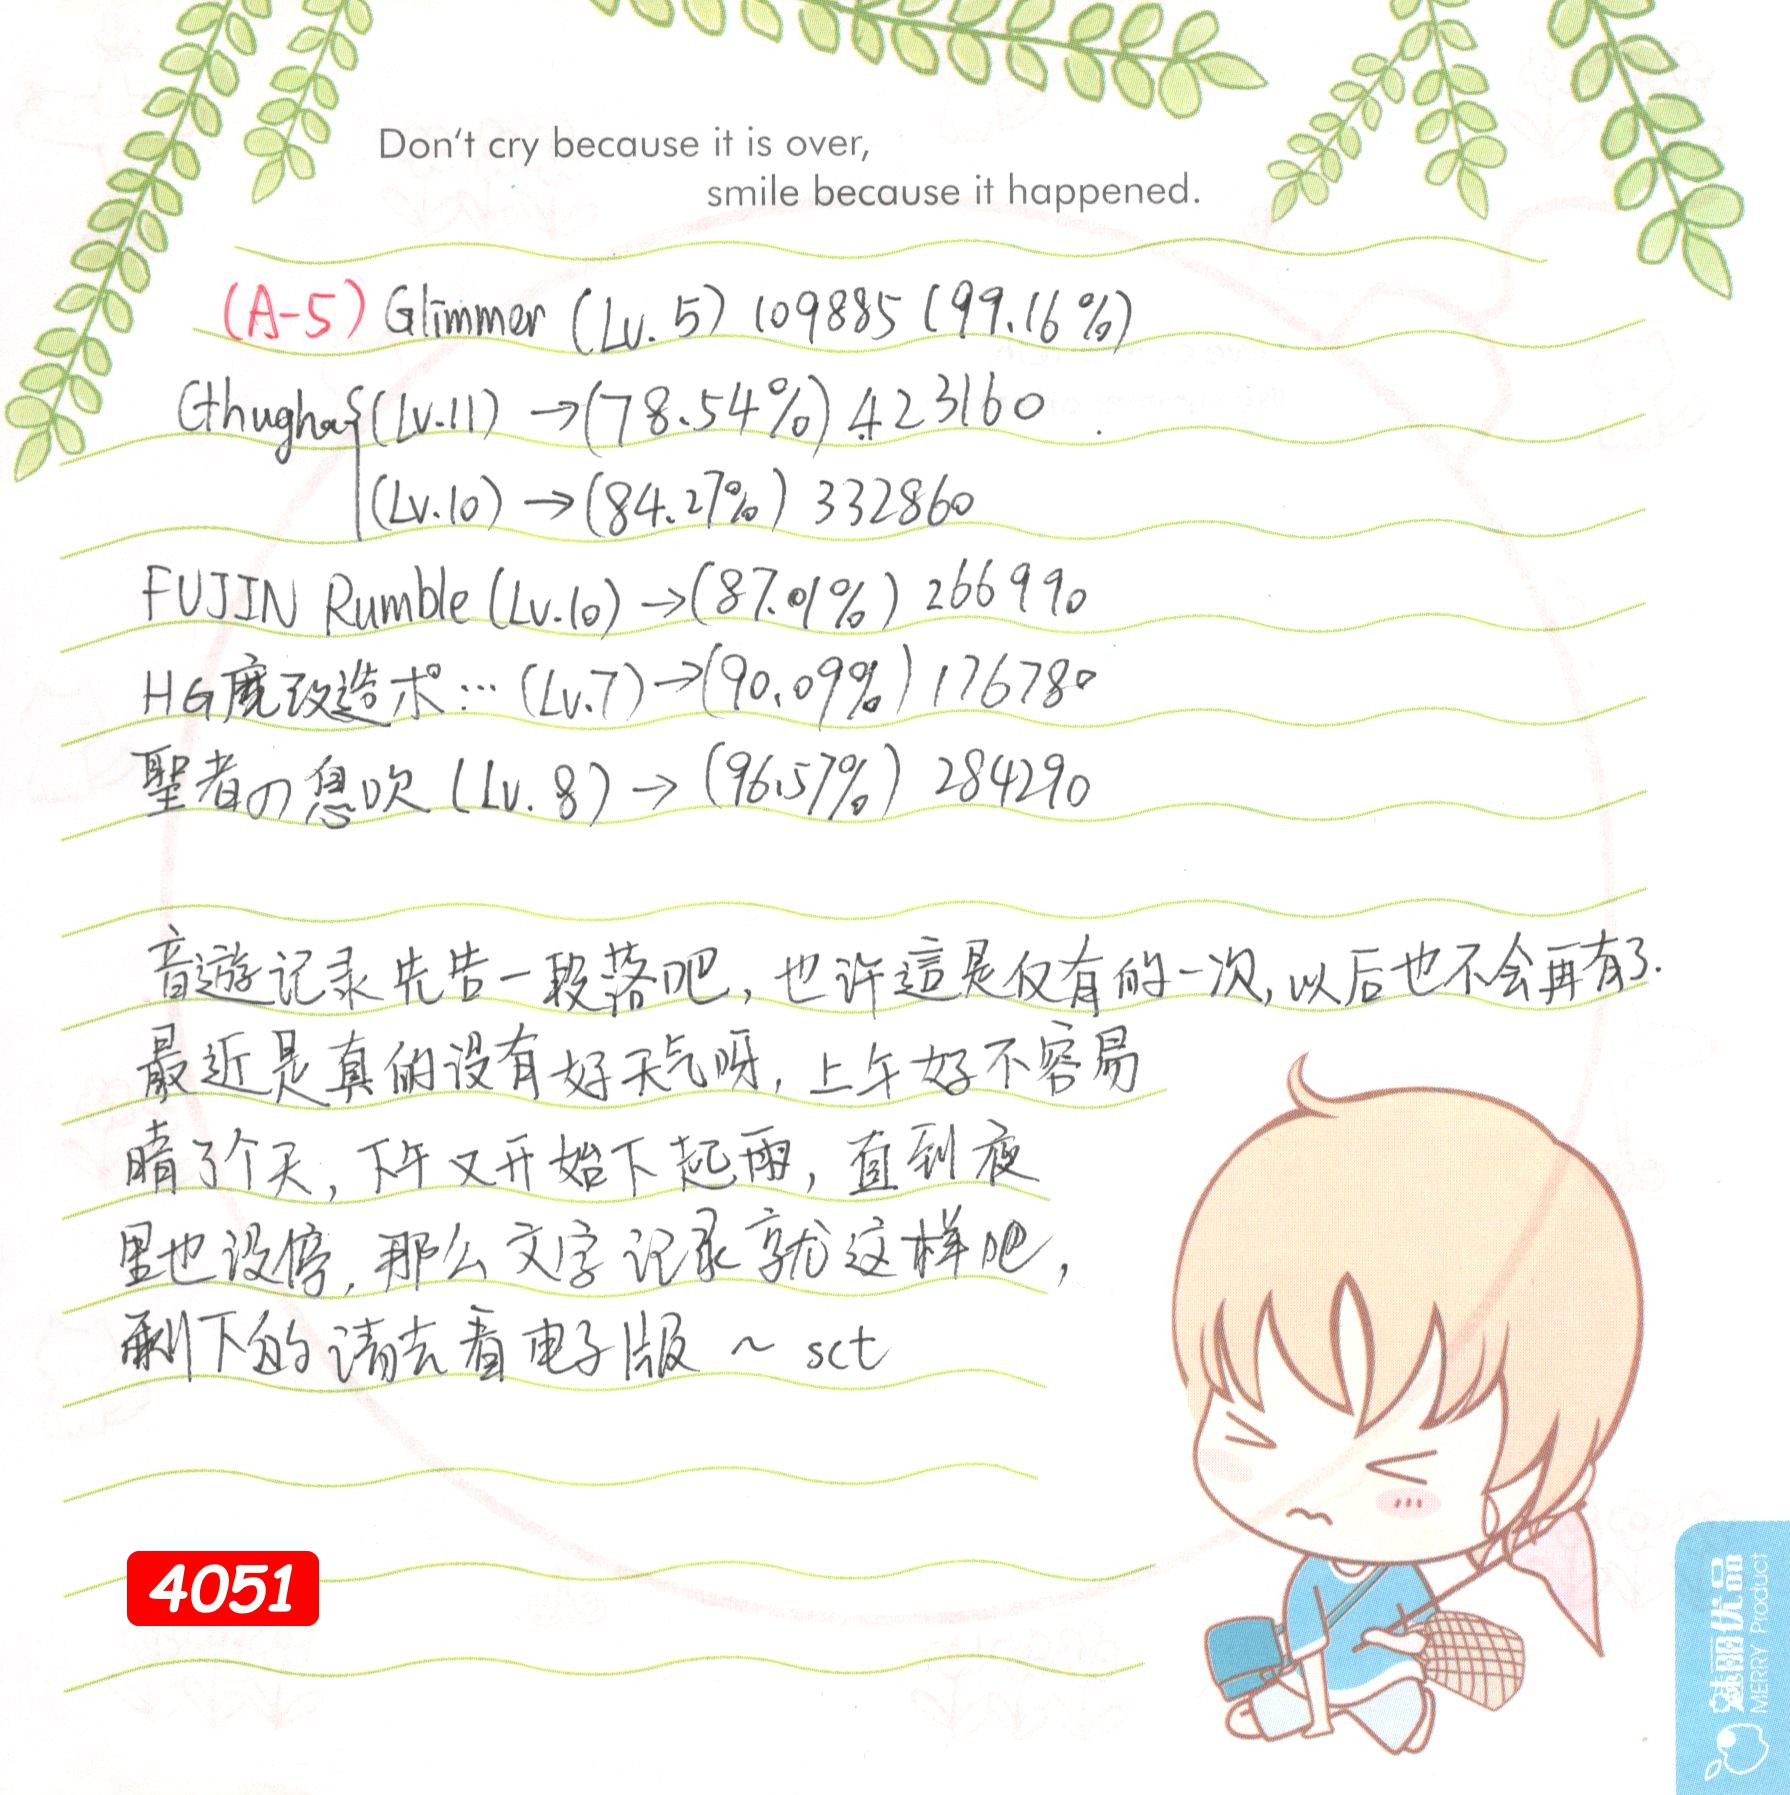 Don't cry because it is over,
smile because it happened.
(A-5) Glimmer (Lv. 5) 109885 (99.16%)
Cthugha{(Lv.11) →(78.54%) 423160
(Lv.10) →(84.27%) 332860
FUJIN Rumble (Lv.10) →(87.01%) 266990
HG魔改造ポ… (Lv.7) →(90.09%) 176780
聖者の息吹 (Lv. 8) → (96.57%) 284290
音遊记录先告一段落吧, 也许這是仅有的一次, 以后也不会再有了.
最近是真的没有好天气呀, 上午好不容易
晴了个天, 下午又开始下起雨, 直到夜
里也没停, 那么文字记录就这样吧,
剩下的请去看电子版 ~ sct
4051
魅丽优品
MERRY Product